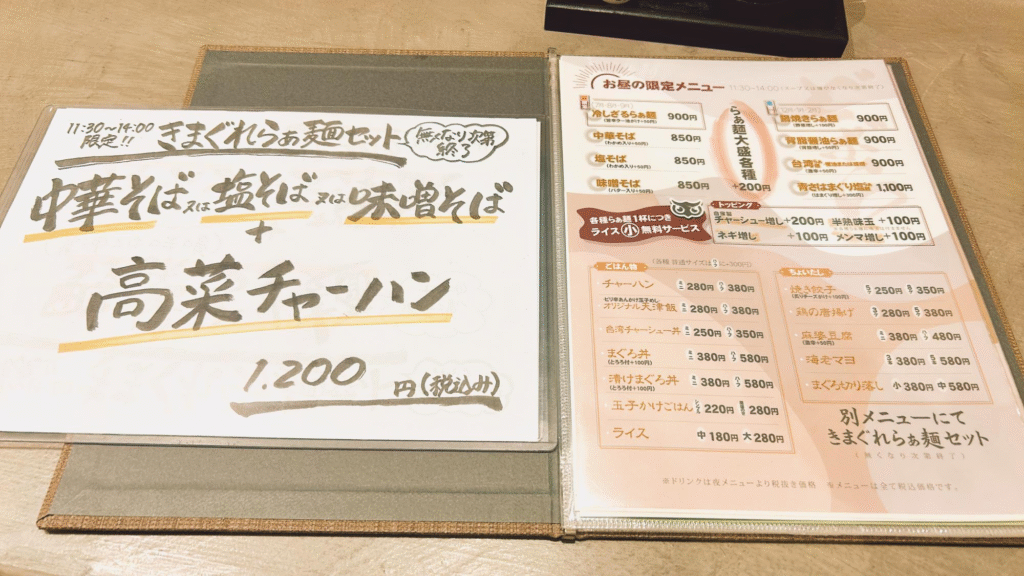 11:30~14:00
限定!!
きまぐれらぁ麺セット
無くなり次第
終了
中華そば又は塩そば又は味噌そば
+
高菜チャーハン
1.200円(税込み)
お昼の限定メニュー 11:30~14:00
冷しざるらぁ麺 900円
中華そば 850円
(わかめ入り+50円)
塩そば 850円
(わかめ入り+50円)
味噌そば 850円
(バター入り+50円)
らぁ麺大盛各種
+200円
鍋焼きらぁ麺 900円
背脂醤油らぁ麺 900円
台湾 900円
(激辛+50円)
青さはまぐり塩 1,100円
各種らぁ麺1杯につき
ライス小無料サービス
トッピング
自家製
チャーシュー増し+200円 半熟味玉+100円
ネギ増し+100円 メンマ増し+100円
ごはん類
チャーハン ミニ280円 ハーフ380円
ピリ辛あんかけ玉子めし
オリジナル天津飯 ミニ280円 ハーフ380円
台湾チャーシュー丼 ミニ250円 ハーフ350円
まぐろ丼 ミニ380円 ハーフ580円
(とろろ付+100円)
漬けまぐろ丼 ミニ380円 ハーフ580円
(とろろ付+100円)
玉子かけごはん 220円 280円
ライス 中180円 大280円
ちょいたし
焼き餃子 250円 350円
鶏の唐揚げ 280円 380円
麻婆豆腐 380円 480円
(激辛+50円)
海老マヨ 380円 580円
まぐろ切り落し 小380円 中580円
別メニューにて
きまぐれらぁ麺セット
(無くなり次第終了)
※ドリンクは夜メニューより税抜き価格 ※メニューは全て税込価格です。